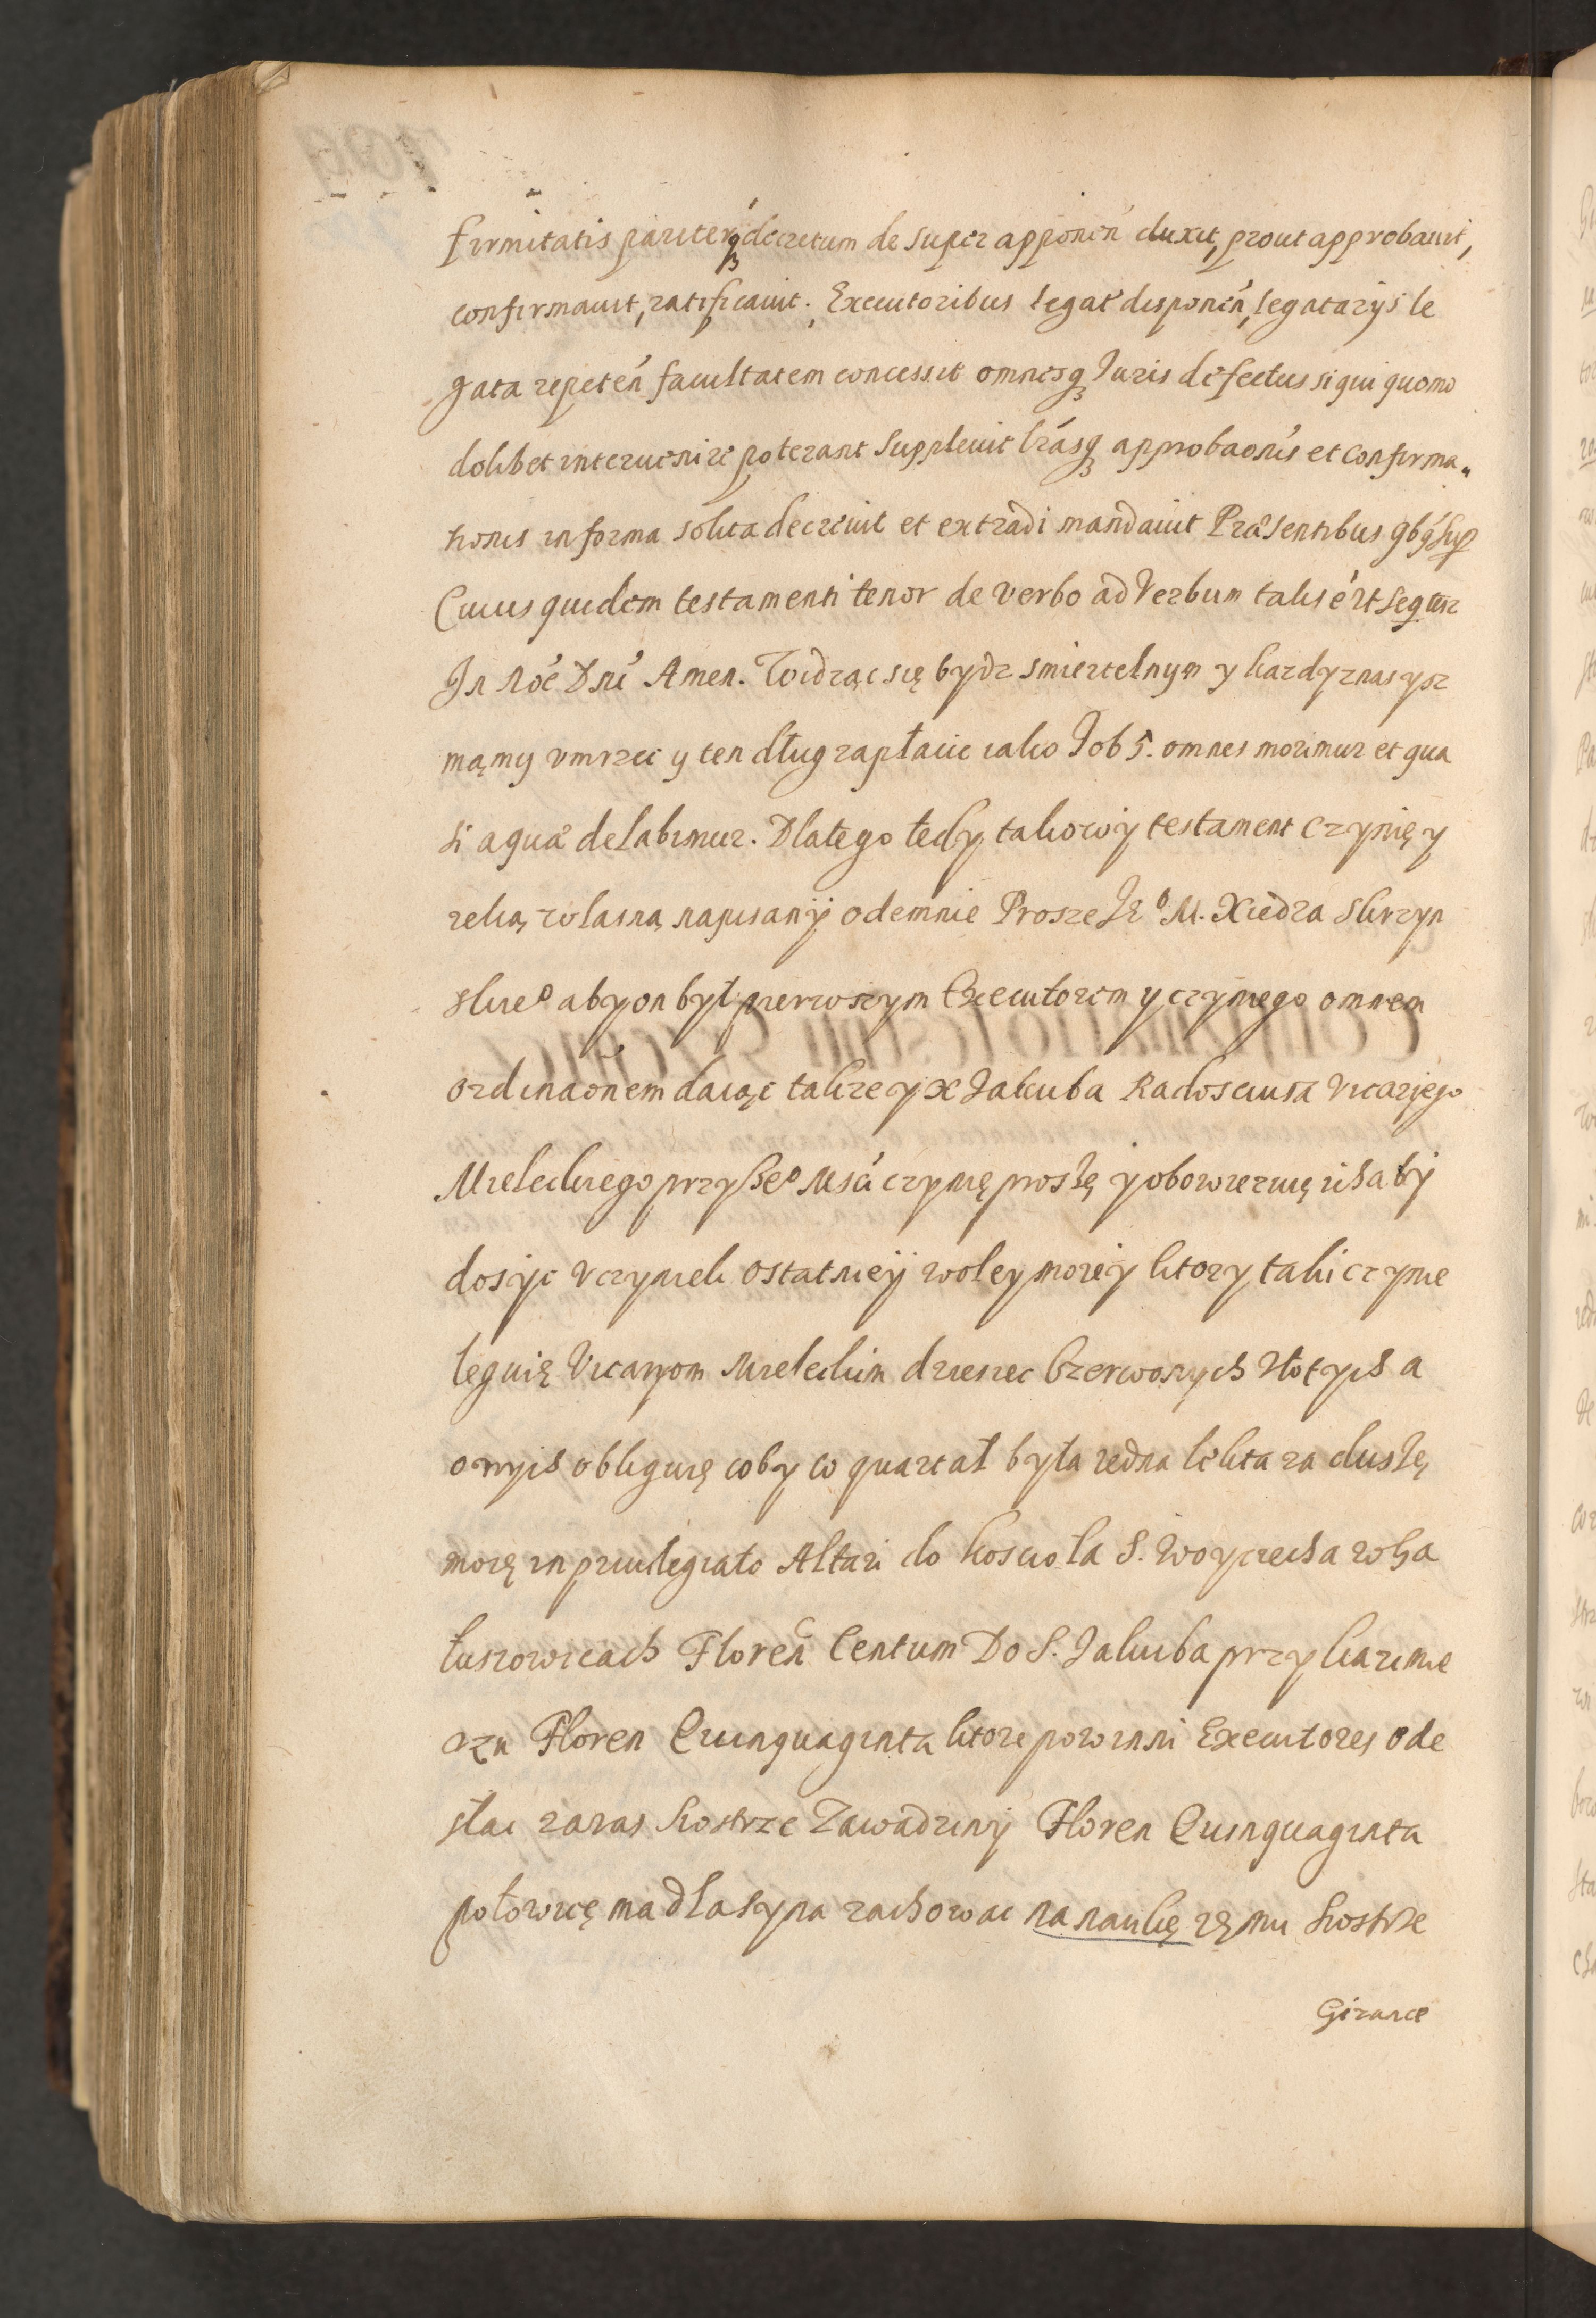 firmitatis pariterq́ꝫ decretum de super apponeń duxit, prout approbauit,
confirmauit, ratificauit. Executoribus legat́ disponeń, legatarijs le
gata repeteń facultatem concessit omnesqꝫ Juris defectus si qui quomo
dolibet interuenire poterant Suppleuit lrásqꝫ approbaonís et confirma„
tionis in forma solita decreuit et extradi mandauit Præsentibus qbq́ Sup
Cuius quidem testamenti tenor de verbo ad Verbum talis é ut Sequtur
In Noé Dní Amen. Widząc się bydz smiertelnym y kazdy znas ysz
mąmy vmrzec y ten dług zapłacic iako Job 5. omnes morimur et qua
si aqua delabimur. Dlatego tedy takowy testament czynię y
ręką własną napisanÿ odemnie Prosze Je⁰ M. Xiedza Skrzyn
skie⁰ aby on był pierwszym Executorem y czynięgo omnem
ordinaoñem daiąc takze y X Jakuba Radosciusa Vicarjego
Mieleckiego przy Je⁰ Msći czynię proszę y obowiezuię ich aby
dosyc vczynieli ostatnieÿ woley moieÿ ktory taki czynie
leguię Vicaryom Mieleckim dziesiec Czerwonych złotych a
onych obliguię coby co quartał była iedna lekta za duszę
moię in priuilegiato Altari do kosciola S. Woyciecha wha
łuszowicach Floreń Centum Do S. Jakuba przy kazimie
rzu Floren Quinquaginta ktore powinni Executores ode
słac zaras Siostrze Zawadzinÿ Floren Quinquaginta
połowicę ma dla syna zachowac na naukię ięmu Siostrze
Gizance